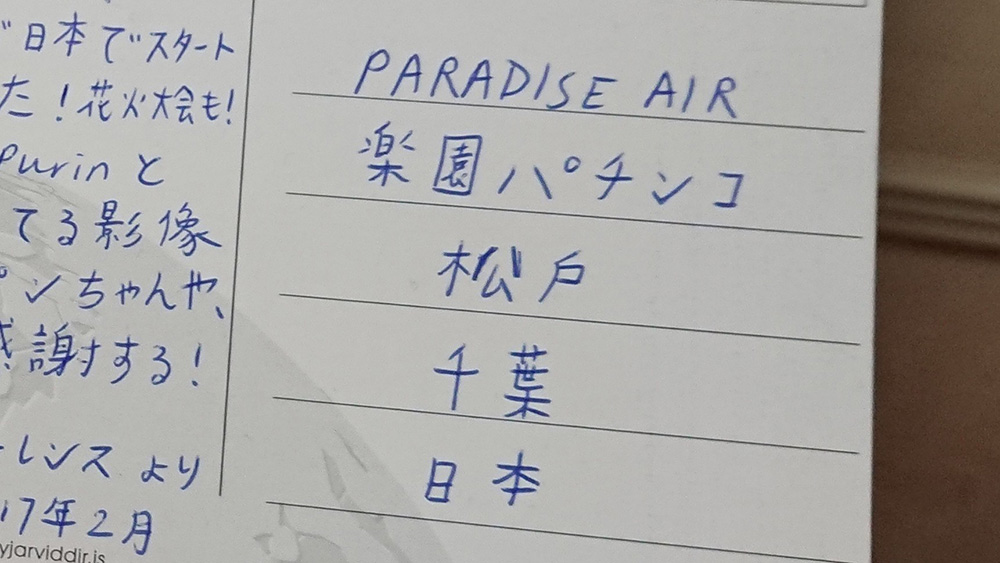 日本でスタート
た！花火大会も！
Purin と
てる影像
ンちゃんや、
感謝する！
レンスより
17年2月
yjarviddir.is
PARADISE AIR
楽園パチンコ
松戸
千葉
日本